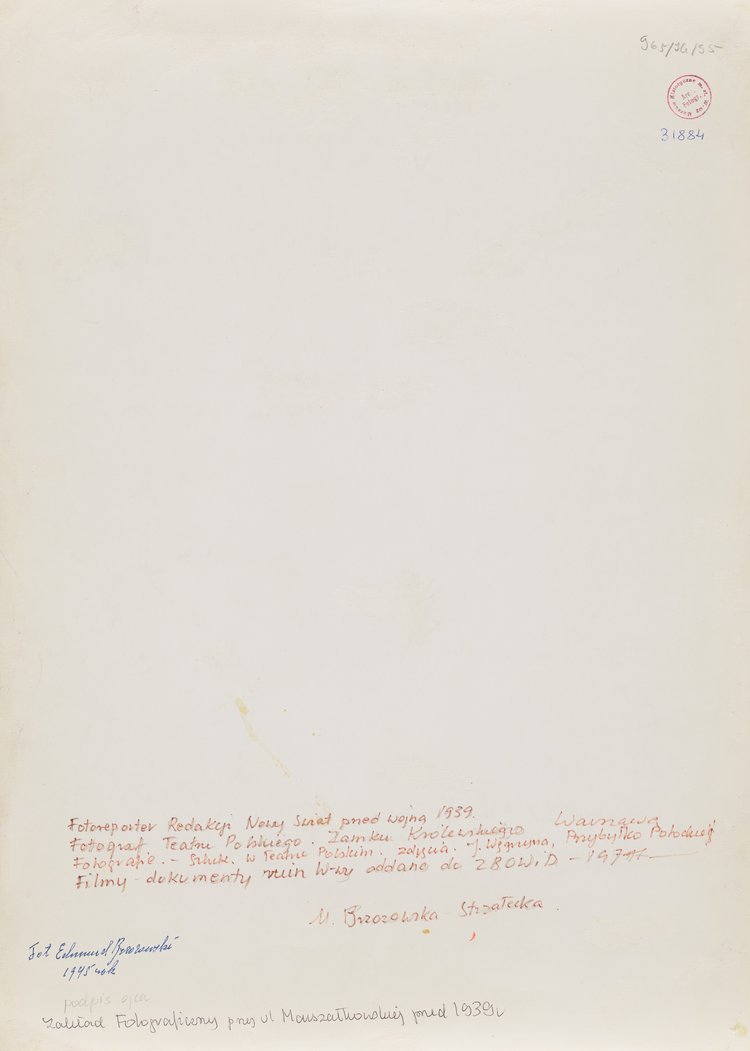 965/76/95
31884
Fotoreporter Redakcji Nowy Świat przed wojną 1939.
Fotograf Teatru Polskiego. Zamku Królewskiego Warszawa
Fotografie. – Sztuk. w Teatru Polskim. zdjęcia. J. Węgrzyna, Przybyłko Potockiej
Filmy – dokumenty ruin W-wy oddano do
M. Brzozowska – Strzałecka
Fot Edmund Brzozowski
1945 rok
podpis ojca
Zakład Fotograficzny przy ul Marszałkowskiej przed 1939r